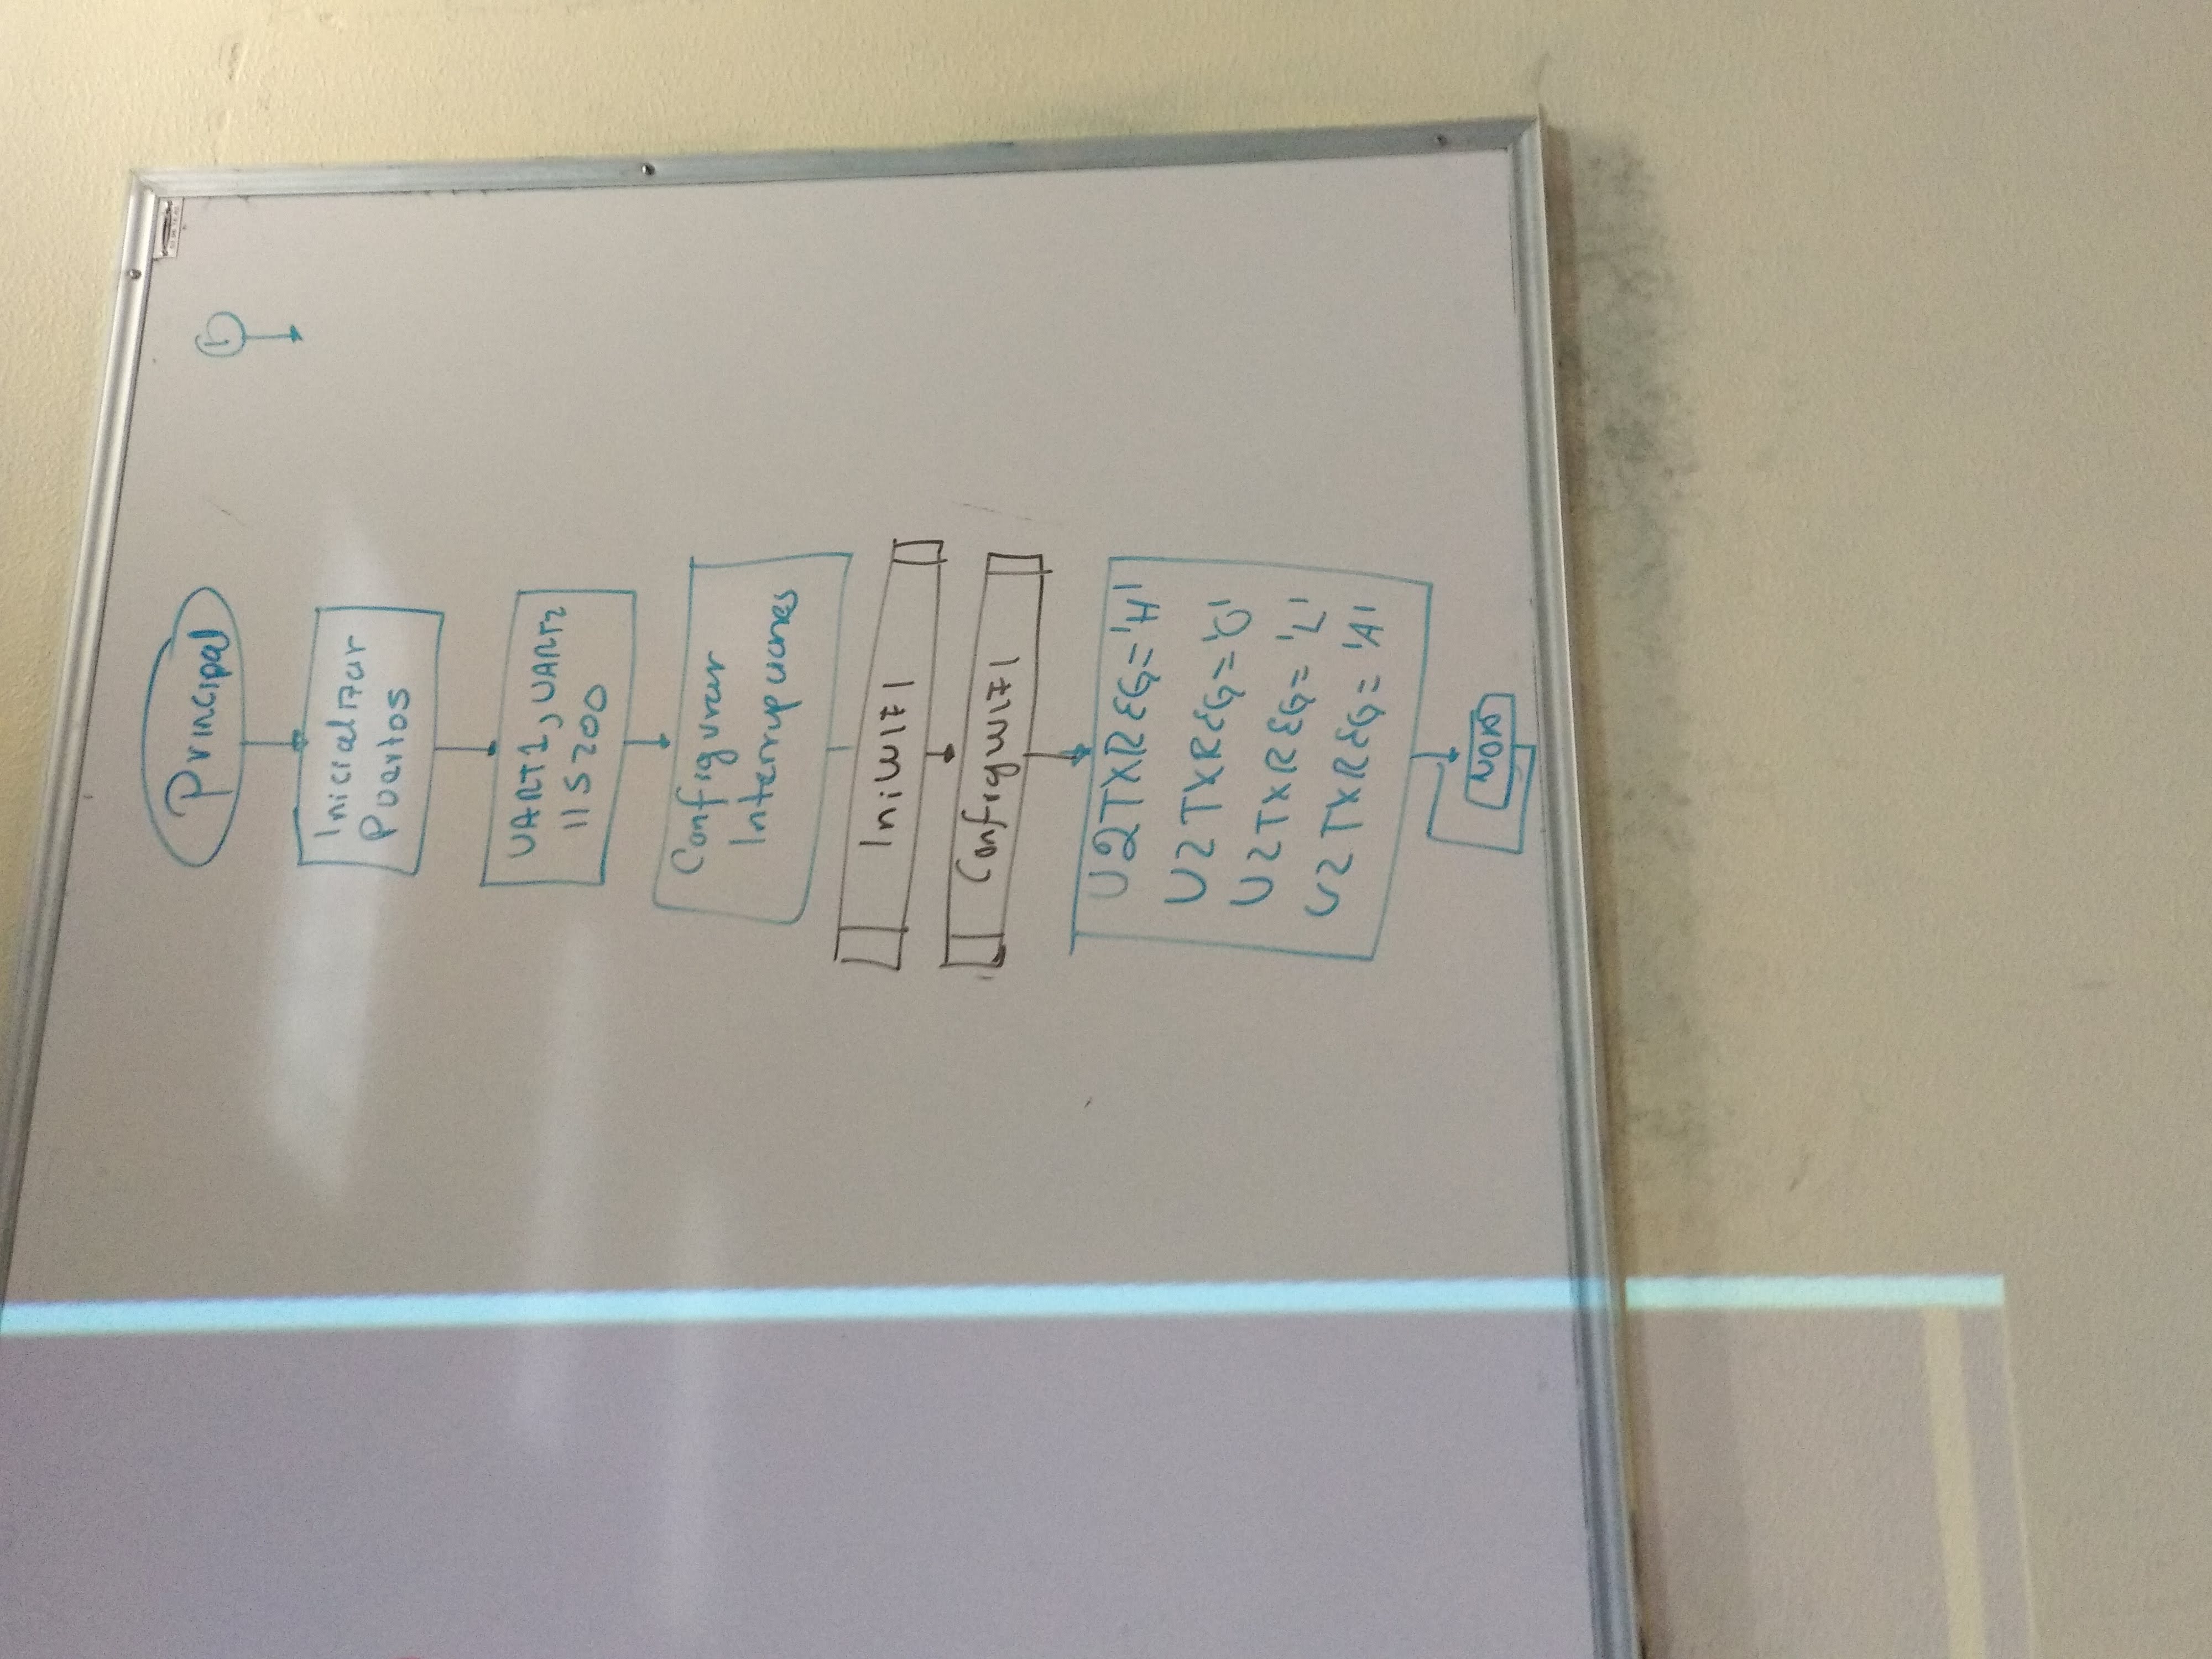 Principal
Inicializar
Puertos
UART1, UART2
115200
Configurar
Interrupciones
IniWIFI
ConfigWIFI
U2TXREG='H'
U2TXREG='O'
U2TXREG='L'
U2TXREG='A'
NOP